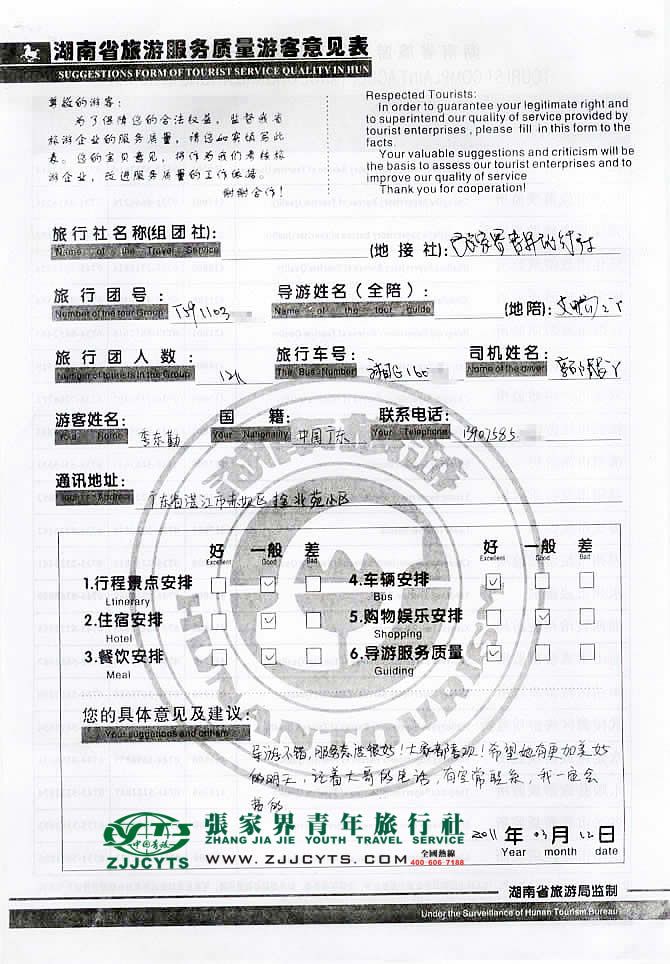 湖南省旅游服务质量游客意见表
SUGGESTIONS FORM OF TOURIST SERVICE QUALITY IN HUN
尊敬的游客:
为了保障您的合法权益,监督我省
旅游企业的服务质量,请您如实填写此
表。您的宝贝意见,将作为我们考核旅
游企业,改进服务质量的工作依据。
谢谢合作!
Respected Tourists:
In order to guarantee your legitimate right and
to superintend our quality of service provided by
tourist enterprises , please fill in this form to the
facts.
Your valuable suggestions and criticism will be
the basis to assess our tourist enterprises and to
improve our quality of service
Thank you for cooperation!
旅行社名称(组团社): (地接社):
Name of the Travel Service
旅行团号: 导游姓名(全陪): (地陪):
Number of the tour Group Name of the tour guide
旅行团人数: 旅行车号: 司机姓名:
Number of tourists in the Group 12人 The Bus Number Name of the driver
游客姓名: 李东勤 国籍: 中国广东 联系电话:
Your Name Your Nationality Your Telephone
通讯地址: 广东省湛江市赤坎区
HUNAN TOURISM
好 一般 差 好 一般 差
Excellent Good Bad Excellent Good Bad
1.行程景点安排 4.车辆安排
Ltinerary Bus
2.住宿安排 5.购物娱乐安排
Hotel Shopping
3.餐饮安排 6.导游服务质量
Meal Guiding
您的具体意见及建议:
Your suggetions and critism
导游不错,服务态度很好!大家都喜欢!希望她有更加美好
的明天,记着大哥的电话,有空常联系,我一定会
CYTS
中国青旅
ZJJCYTS
張家界青年旅行社
ZHANG JIA JIE YOUTH TRAVEL SERVICE
WWW.ZJJCYTS.COM
全國熱線
400 606 7188
2011 年 03 月 12 日
Year month date
湖南省旅游局监制
Under the Surveillance of Hunan Tourism Bureau